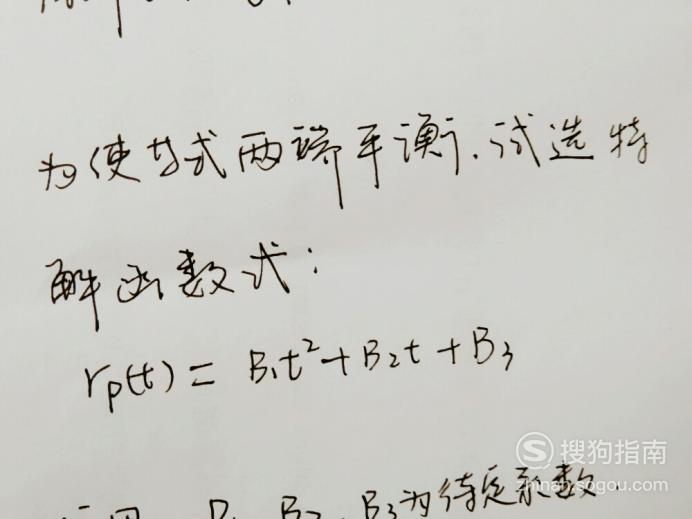 为使方式两端平衡.试选特
解函数式:
rp(t) = B₁t²+B₂t+B₃
B₂、B₃为待定系数.
搜狗指南
zhinan.sogou.com